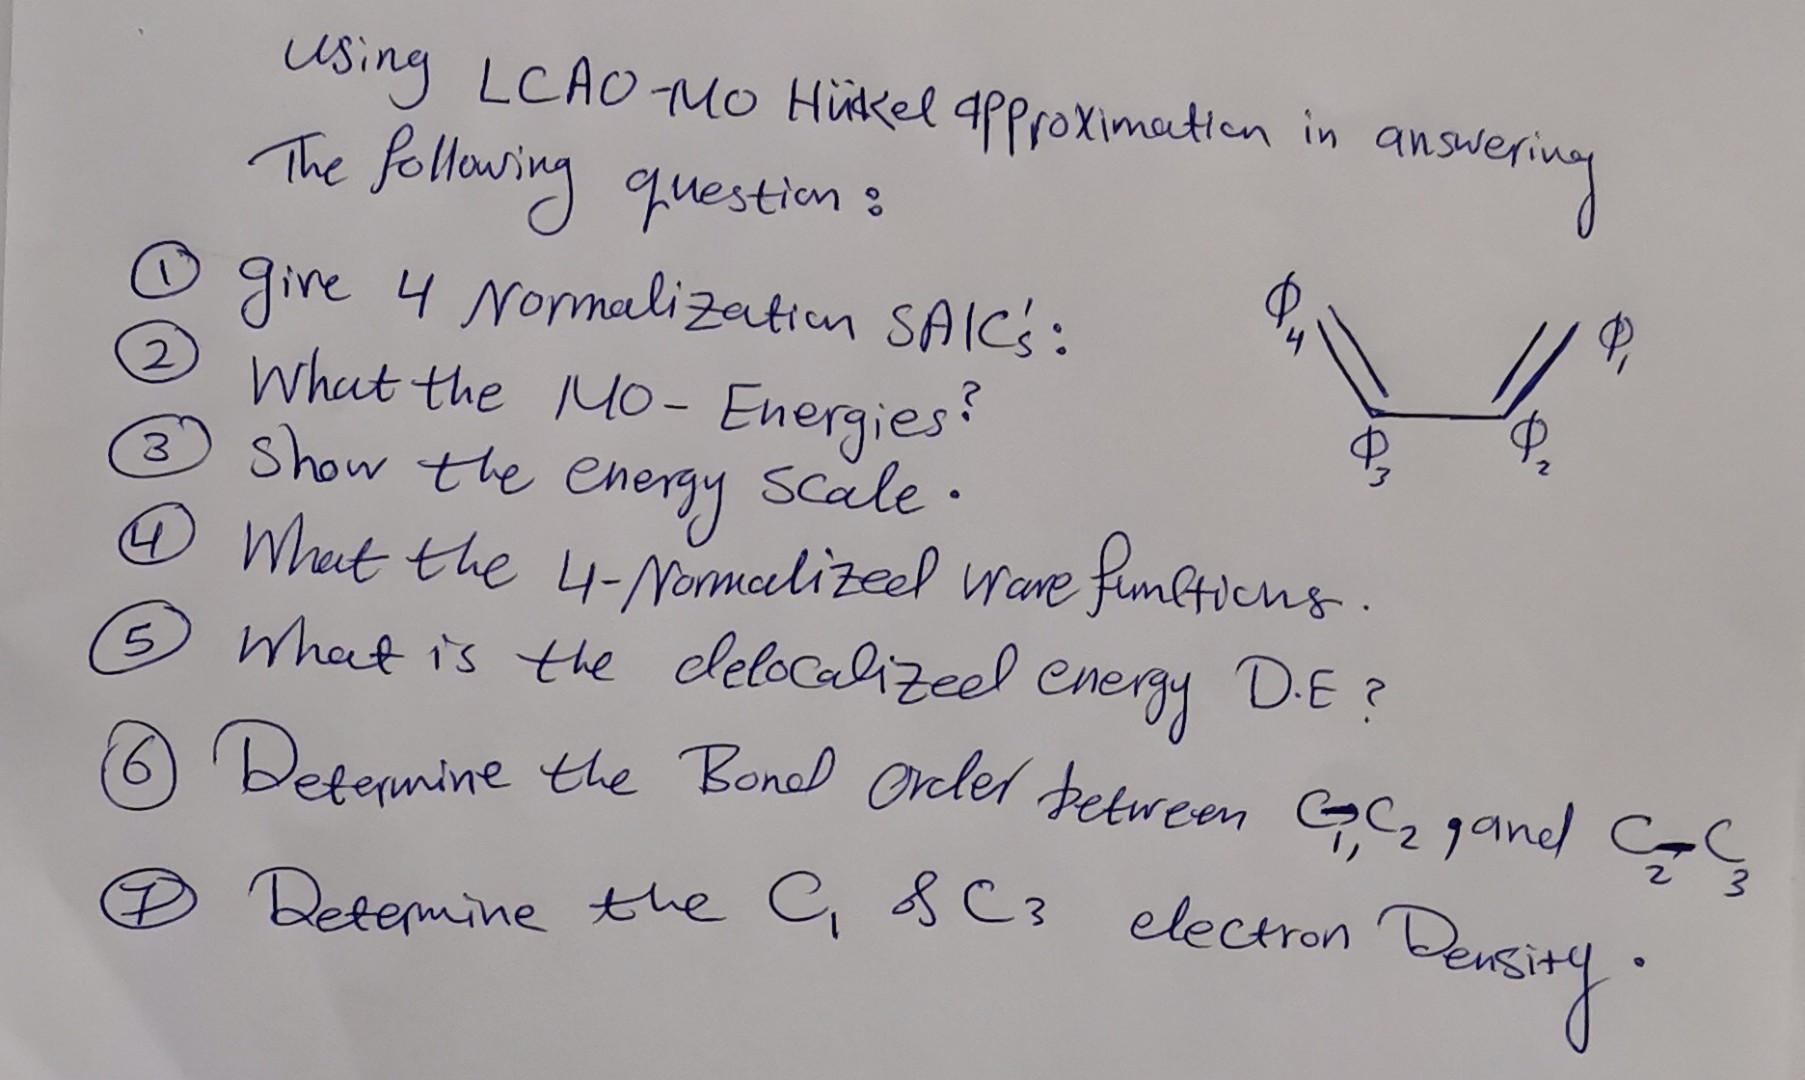 Using LCAO-MO Hükel approximation in answering
The following question:
① give 4 Normalization SAlC's:
② What the MO- Energies?
③ Show the energy scale.
④ What the 4-Normalized wave functions.
⑤ What is the delocalized energy D.E?
⑥ Determine the Bond Order between C1, C2, and C2-C3
⑦ Determine the C1 & C3 electron Density.
Φ4
Φ1
Φ3
Φ2